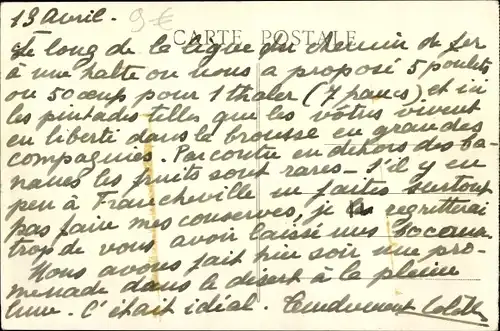 13 Avril. 9€
CARTE POSTALE
Le long de la ligne du chemin de fer
à une halte on nous a proposé 5 poulets
ou 50 œufs pour 1 thaler (7 francs) et ici
les pintades telles que les vôtres vivent
en liberté dans la brousse en grandes
compagnies. Par contre en dehors des ba-
nanes les fruits sont rares - S'il y en
peu à Francheville ne faites surtout
pas faire mes conserves, je regretterai
trop de vous avoir laissé mes
Nous avons fait hier soir une pro-
menade dans le désert à la pleine
lune. C'était idéal. Tendrement